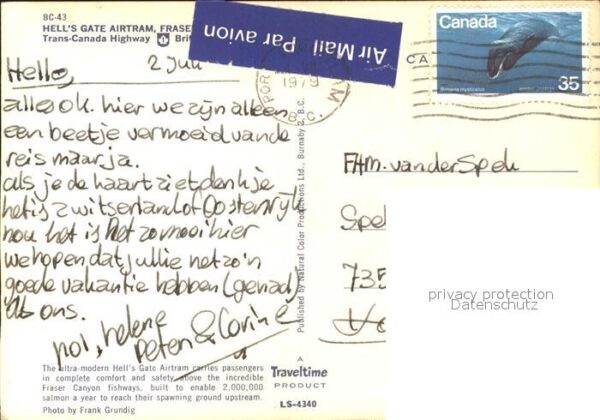 BC-43
HELL'S GATE AIRTRAM, FRASER
Trans-Canada Highway Brit
Air Mail Par avion
Canada
35
Balaena mysticetus
CA
1979
B.C.
2 Juli
Hello,
alles ok. hier we zijn alleen
een beetje vermoeid van de
reis maar ja.
als je de kaart ziet denk je
het is zwitserland of Oostenrijk
nou het is net zo mooi hier
we hopen dat jullie net zo'n
goede vakantie hebben (gehad)
als ons.
nol, helene
Peter & Corine
FHM. van der Spek
Spe
735
privacy protection
Datenschutz
Published by Natural Color Productions Ltd., Burnaby 2, B.C.
The ultra-modern Hell's Gate Airtram carries passengers
in complete comfort and safety above the incredible
Fraser Canyon fishways, built to enable 2,000,000
salmon a year to reach their spawning ground upstream.
Photo by Frank Grundig
A
Traveltime
PRODUCT
LS-4340